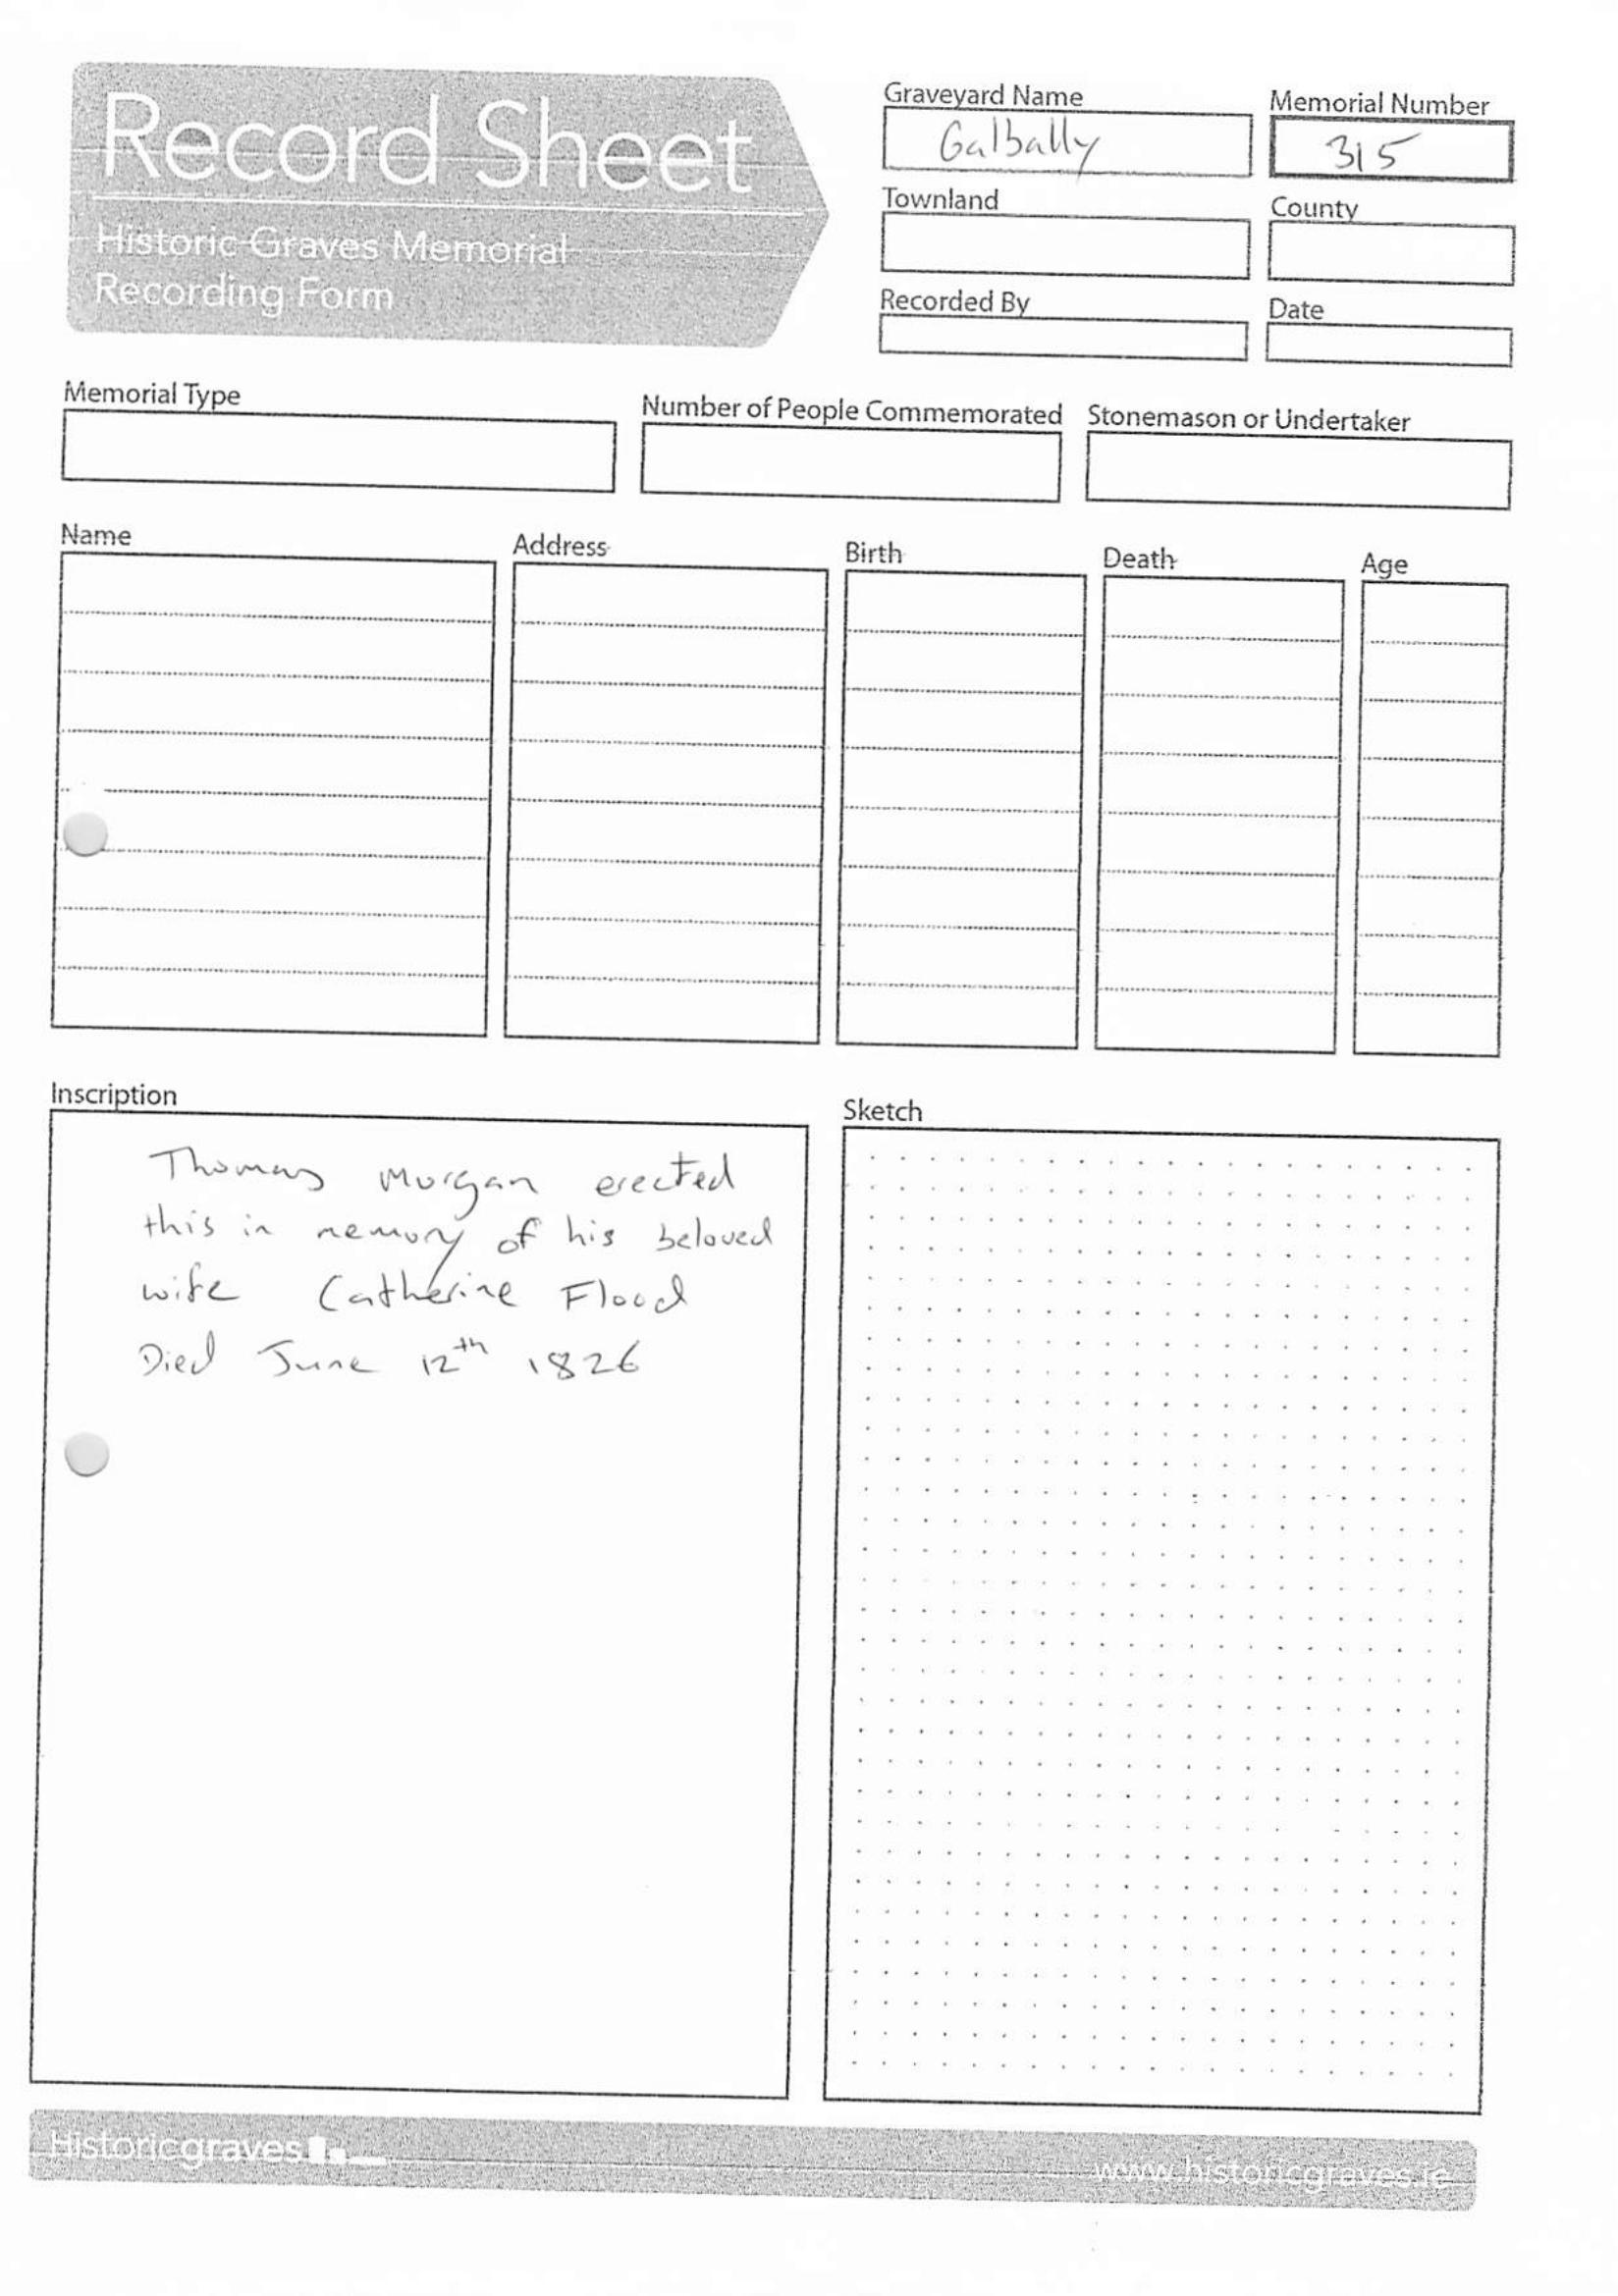 Record Sheet
Historic Graves Memorial
Recording Form
Graveyard Name
Galbally
Memorial Number
315
Townland
County
Recorded By
Date
Memorial Type
Number of People Commemorated
Stonemason or Undertaker
Name
Address
Birth
Death
Age
Inscription
Thomas Morgan erected
this in memory of his beloved
wife Catherine Flood
Died June 12th 1826
Sketch
Historicgraves
www.historicgraves.ie